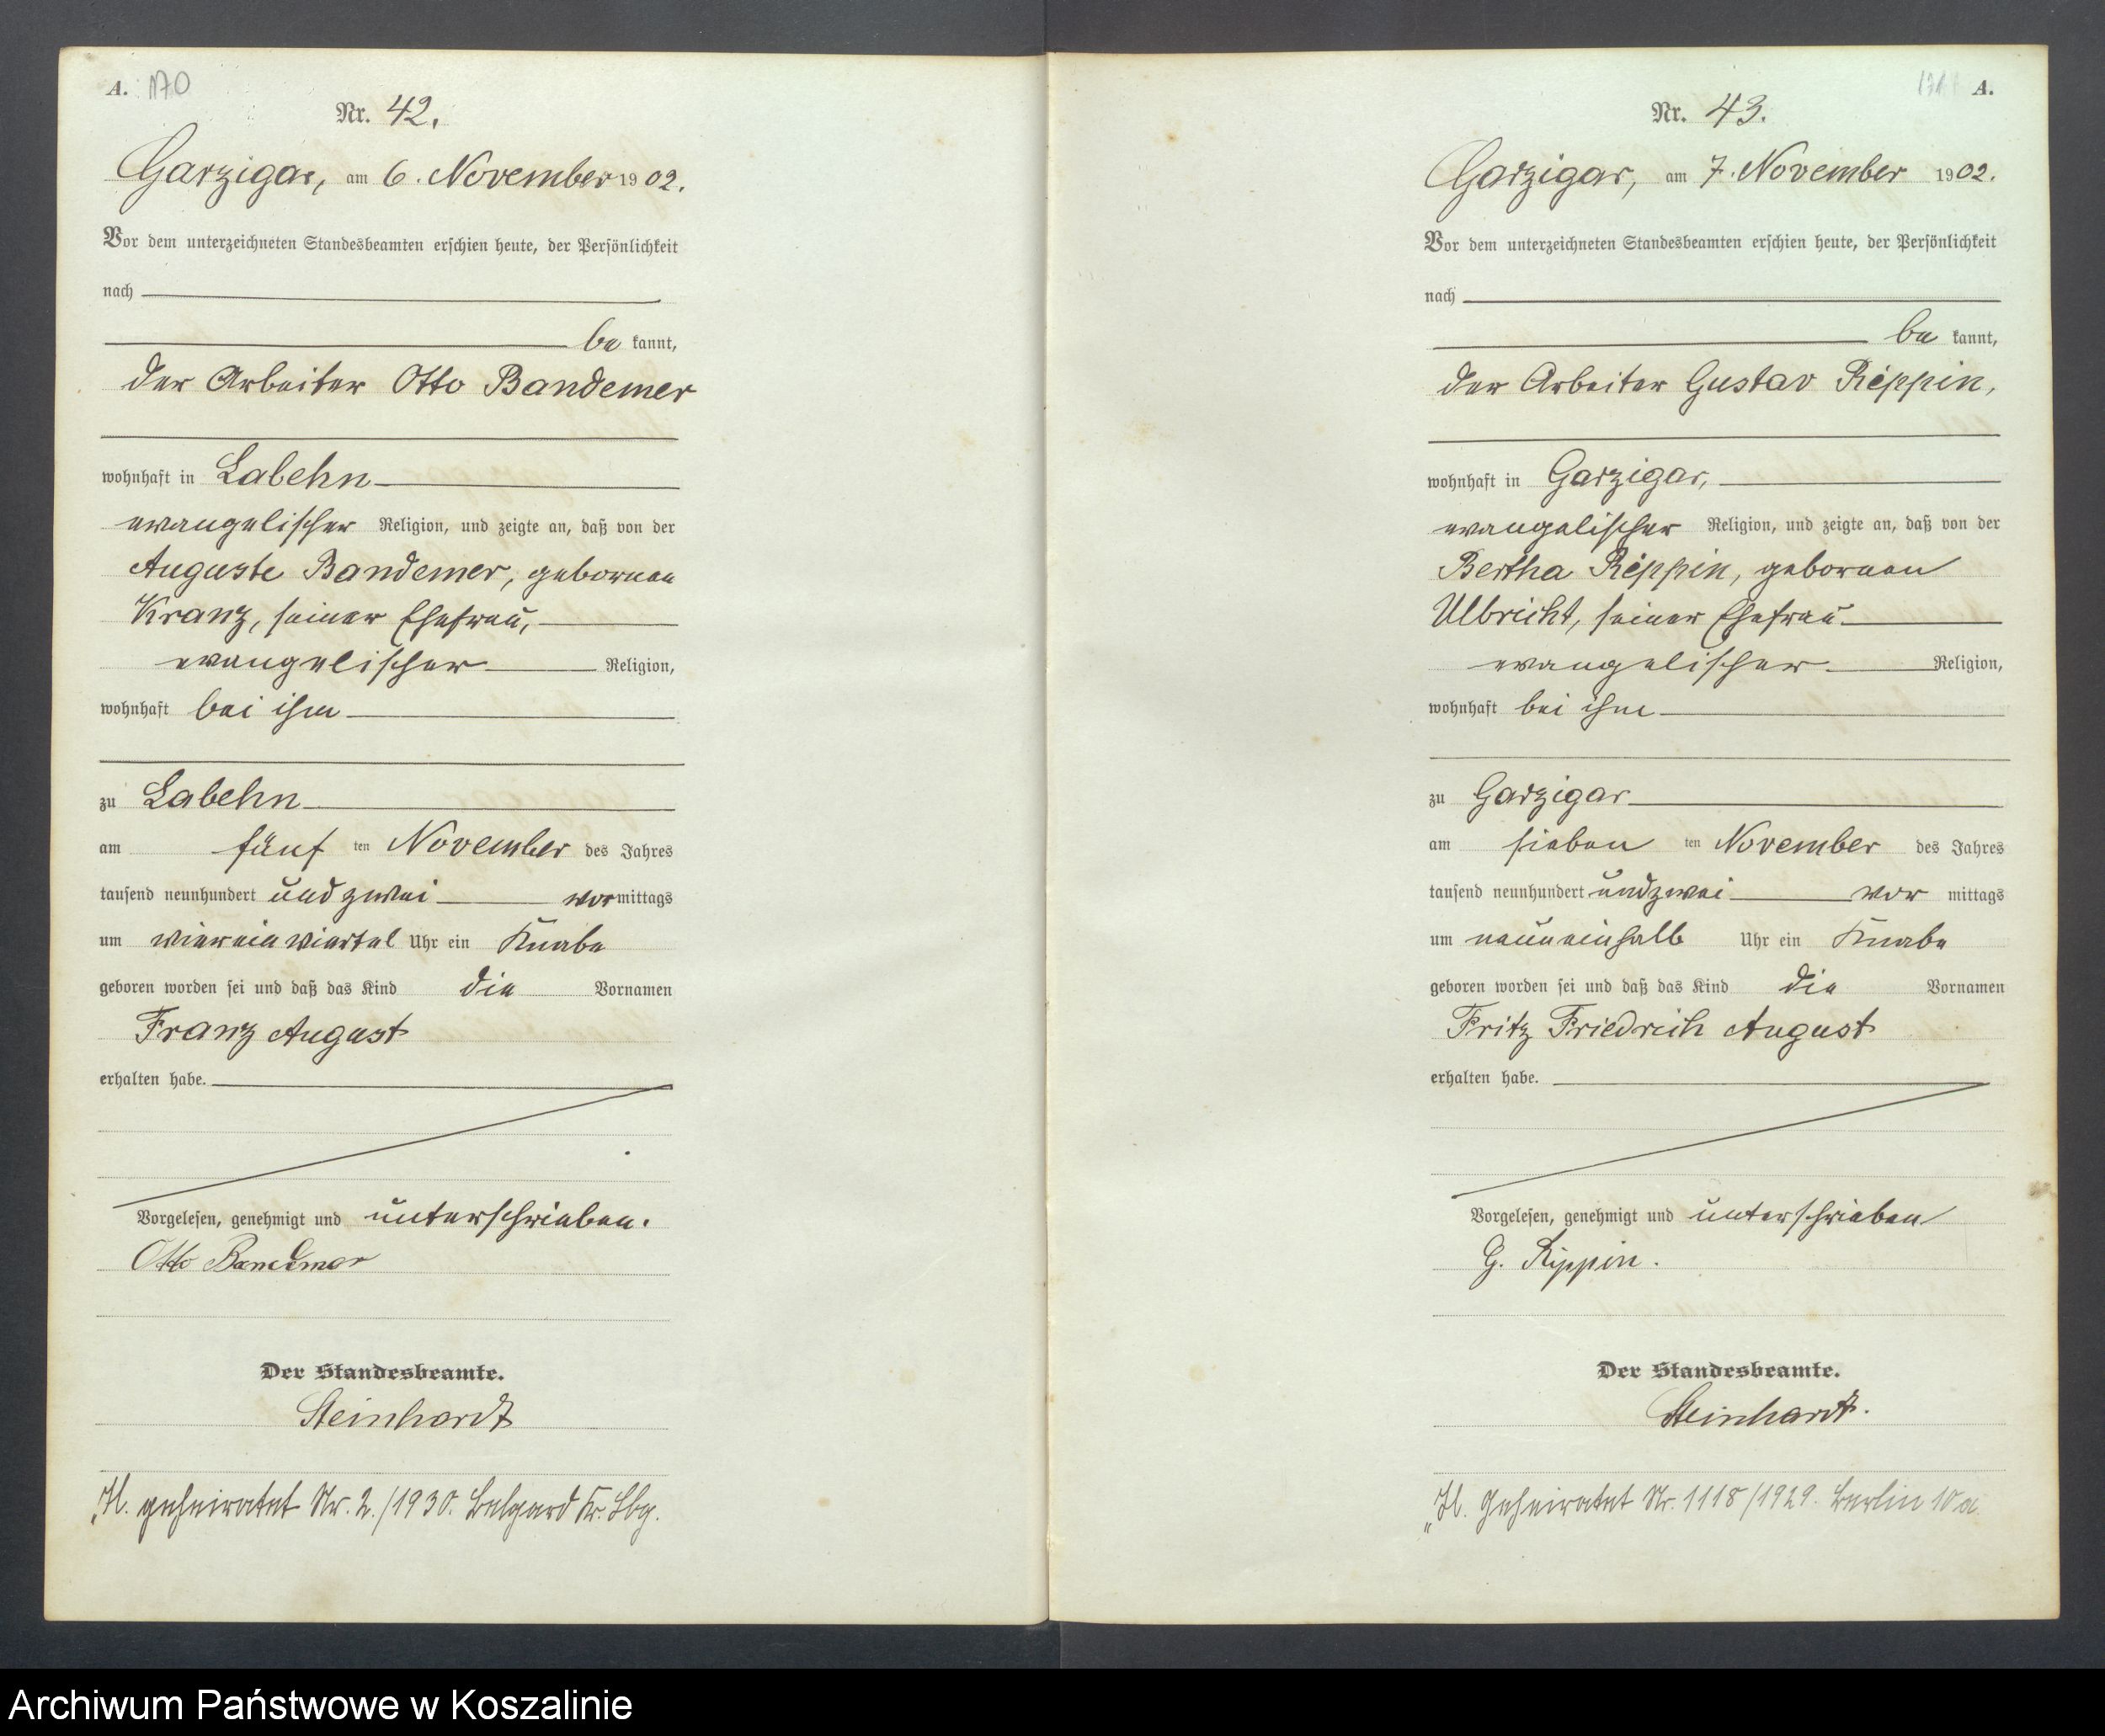 A. 170
Nr. 42.
Garzigar, am 6. November 1902.
Vor dem unterzeichneten Standesbeamten erschien heute, der Persönlichkeit
nach
be kannt,
der Arbeiter Otto Bandemer
wohnhaft in Labehn
evangelischer Religion, und zeigte an, daß von der
Auguste Bandemer, geborenen
Kranz, seiner Ehefrau,
evangelischer Religion,
wohnhaft bei ihm
zu Labehn
am fünf ten November des Jahres
tausend neunhundert und zwei vormittags
um viereinviertel Uhr ein Knabe
geboren worden sei und daß das Kind die Vornamen
Franz August
erhalten habe.
Vorgelesen, genehmigt und unterschrieben.
Otto Bandemer
Der Standesbeamte.
Steinhardt
„H. geheiratet Nr. 2./1930. Belgard Kr. Lbg.
A.
Nr. 43.
Garzigar, am 7. November 1902.
Vor dem unterzeichneten Standesbeamten erschien heute, der Persönlichkeit
nach
be kannt,
der Arbeiter Gustav Rippin,
wohnhaft in Garzigar,
evangelischer Religion, und zeigte an, daß von der
Bertha Rippin, geborenen
Ulbricht, seiner Ehefrau
evangelischer Religion,
wohnhaft bei ihm
zu Garzigar
am sieben ten November des Jahres
tausend neunhundert und zwei vor mittags
um neuneinhalb Uhr ein Knabe
geboren worden sei und daß das Kind die Vornamen
Fritz Friedrich August
erhalten habe.
Vorgelesen, genehmigt und unterschrieben
G. Rippin.
Der Standesbeamte.
Steinhardt.
„H. Geheiratet Nr. 1118/1929. Berlin 10a
Archiwum Państwowe w Koszalinie